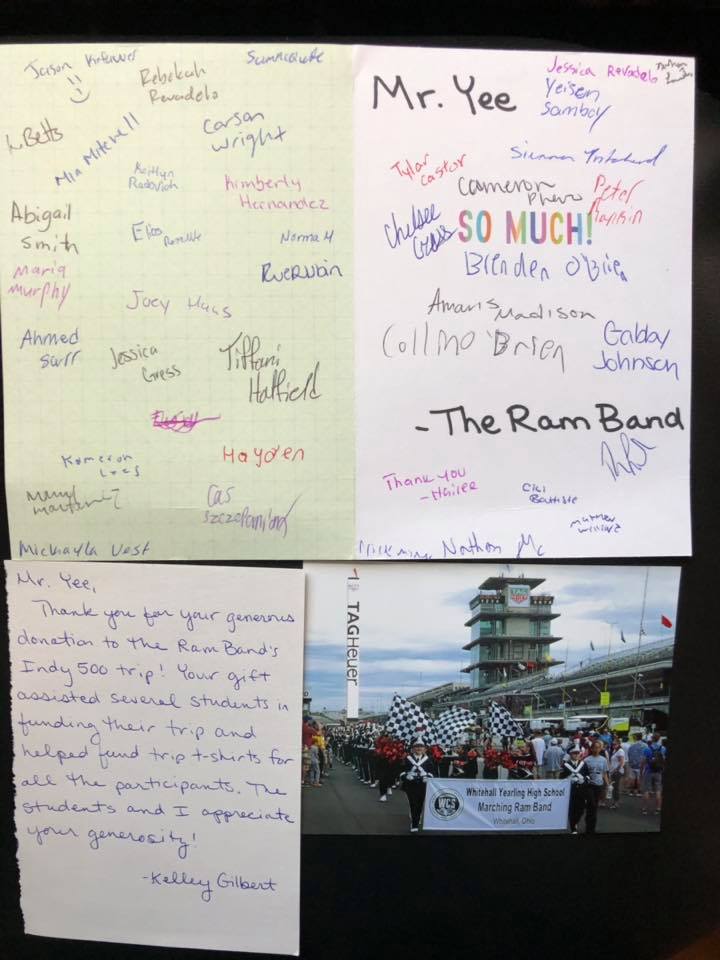 Jason
Rebekah
Revadelo
L. Betts
Mia Mitchell
Carson
Wright
Kaitlyn
Radovich
Kimberly
Hernandez
Abigail
Smith
Elias
Norma H
Maria
Murphy
Joey Haas
Ahmed
Sarr
Jessica
Gress
Tiffani
Hatfield
Kameron
Hayden
Cas
Mickayla Vest
Jessica Revadelo
Mr. Yee
Yeisen
Samboy
Tylar
Castor
Sienna Pritchard
Cameron
Peter
Chelsee
Gress
SO MUCH!
Brenden O'Brien
Amaris Madison
Collin O'Brien
Gabby
Johnson
-The Ram Band
Thank you
-Hailee
Cici
Battiste
Nathan Mc
Mr. Yee,
Thank you for your generous
donation to the Ram Band's
Indy 500 trip! Your gift
assisted several students in
funding their trip and
helped fund trip t-shirts for
all the participants. The
students and I appreciate
your generosity!
-Kelley Gilbert
TAGHeuer
TAG
WCS
Whitehall Yearling High School
Marching Ram Band
Whitehall, Ohio